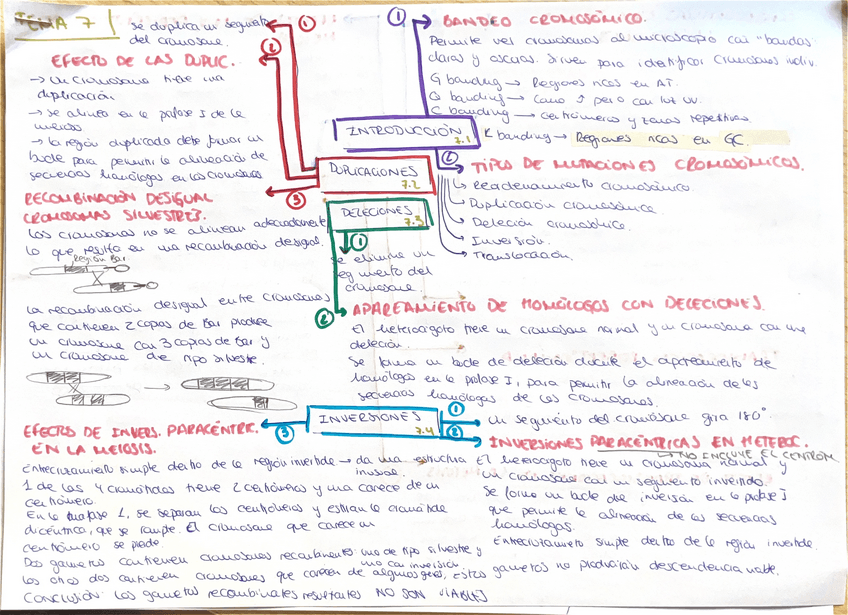 TEMA 7
① BANDEO CROMOSÓMICO.
Permite ver cromosomas al microscopio con "bandas"
claras y oscuras. Sirven para identificar cromosomas indiv.
G banding → Regiones ricas en AT.
Q banding → Como ↑ pero con luz UV.
C banding → centrómeros y zonas repetitivas.
R banding → Regiones ricas en GC.
INTRODUCCIÓN 7.1
② TIPOS DE MUTACIONES CROMOSÓMICAS.
Reordenamiento cromosómico
Duplicación cromosómica.
Deleción cromosómica.
Inversión.
Translocación.
DUPLICACIONES 7.2
① se duplica un segmento
del cromosoma.
② EFECTO DE LAS DUPLIC.
→ Un cromosoma tiene una
duplicación
→ se alinean en la profase I de la
meiosis
→ la región duplicada debe formar un
bucle para permitir la alineación de
secuencias homólogas en los cromosomas
③ RECOMBINACIÓN DESIGUAL
CROMOSOMAS SILVESTRES.
Los cromosomas no se alinean adecuadamente
lo que resulta en una recombinación desigual.
Región Bar
La recombinación desigual entre cromosomas
que contienen 2 copias de Bar produce
un cromosoma con 3 copias de Bar y
un cromosoma de tipo silvestre.
DELECIONES 7.3
① se elimina un
segmento del
cromosoma.
② APAREAMIENTO DE HOMÓLOGOS CON DELECIONES.
El heterocigoto tiene un cromosoma normal y un cromosoma con una
deleción.
Se forma un bucle de deleción durante el apareamiento de
homólogos en la profase I, para permitir la alineación de las
secuencias homólogas de los cromosomas.
INVERSIONES 7.4
① Un segmento del cromosoma gira 180°
② INVERSIONES PARACÉNTRICAS EN HETEROC.
→ NO INCLUYE EL CENTROM
El heterocigoto tiene un cromosoma normal y
un cromosoma con un segmento invertido.
Se forma un bucle de inversión en la profase I
que permite la alineación de las secuencias
homólogas.
Entrecruzamiento simple dentro de la región invertida.
③ EFECTO DE INVERS. PARACÉNTRIC.
EN LA MEIOSIS.
Entrecruzamiento simple dentro de la región invertida → da una estructura
inusual.
1 de las 4 cromátidas tiene 2 centrómeros y una carece de un
centrómero.
En la anafase 1, se separan los centrómeros y estiran la cromátida
dicéntrica, que se rompe. El cromosoma que carece un
centrómero se pierde.
Dos gametos contienen cromosomas recombinantes: uno de tipo silvestre y
uno con inversión.
Los otros dos contienen cromosomas que carecen de algunos genes, estos gametos no producirán descendencia viable.
CONCLUSIÓN: Los gametos recombinantes resultantes NO SON VIABLES